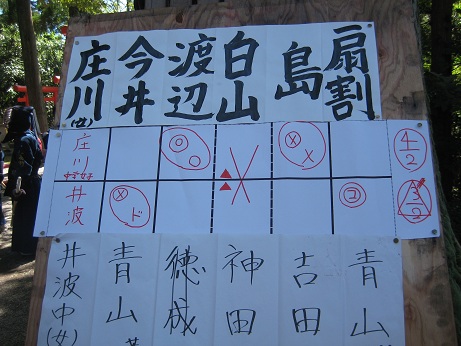 庄川(女) 今井 渡辺 白山 島 扇割
庄川女子 ○○ × ⊗× 4/2
井波 ⊗ド ▲▲ コ 3/2
井波中(女) 青山 徳成 神田 吉田 青山